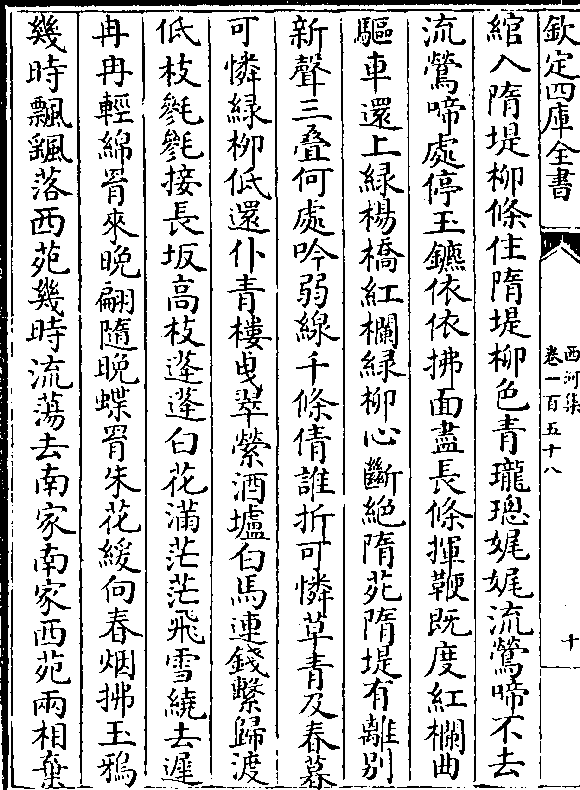 欽定四庫全書
西河集
卷一百五十八
十
綰入隋堤柳條住隋堤柳色青瓏璁娓娓流鶯啼不去
流鶯啼處停玉鑣依依拂面盡長條揮鞭既度紅欄曲
驅車還上緑楊橋紅欄緑柳心斷絶隋苑隋堤有離别
新聲三叠何處吟弱線千條倩誰折可憐草青及春暮
可憐緑柳低還仆青樓曵翠縈酒壚白馬連錢繫歸渡
低枝毿毿接長坂高枝蓬蓬白花滿茫茫飛雪繞去遲
冉冉輕綿罥來晚翩隨晚蝶罥朱花緩向春烟拂玉鴉
幾時飄颻落西苑幾時流蕩去南家南家西苑兩相棄